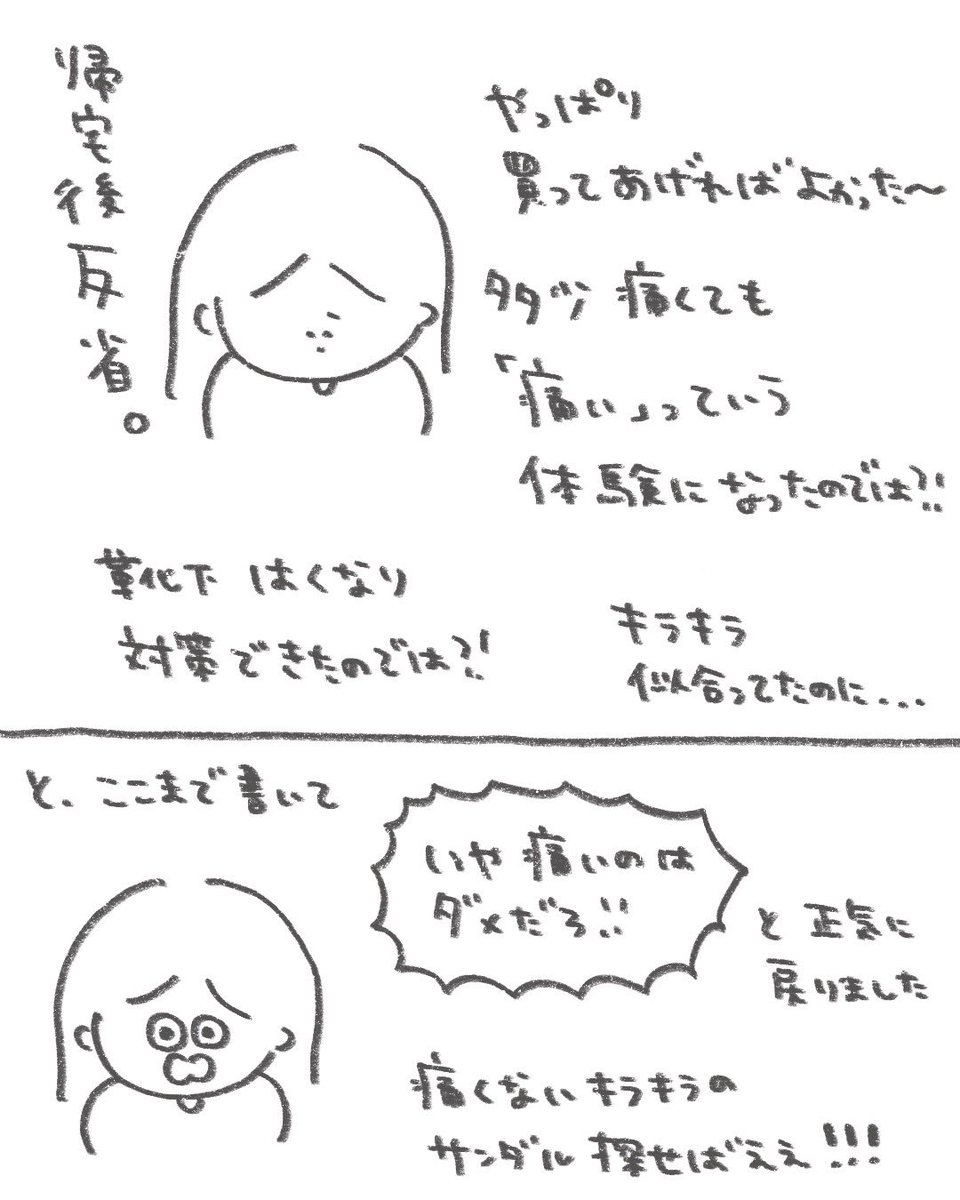 帰宅後反省。
やっぱり
買ってあげればよかった〜
タタヅ痛くても
「痛い」っていう
体験になったのでは?!
靴化下 はくなり
対策できたのでは?!
キラキラ
似合ってたのに...
と、ここまで書いて
いや痛いのは
ダメだろ!!
と正気に
戻りました
痛くないキラキラの
サンダル探せばええ!!!